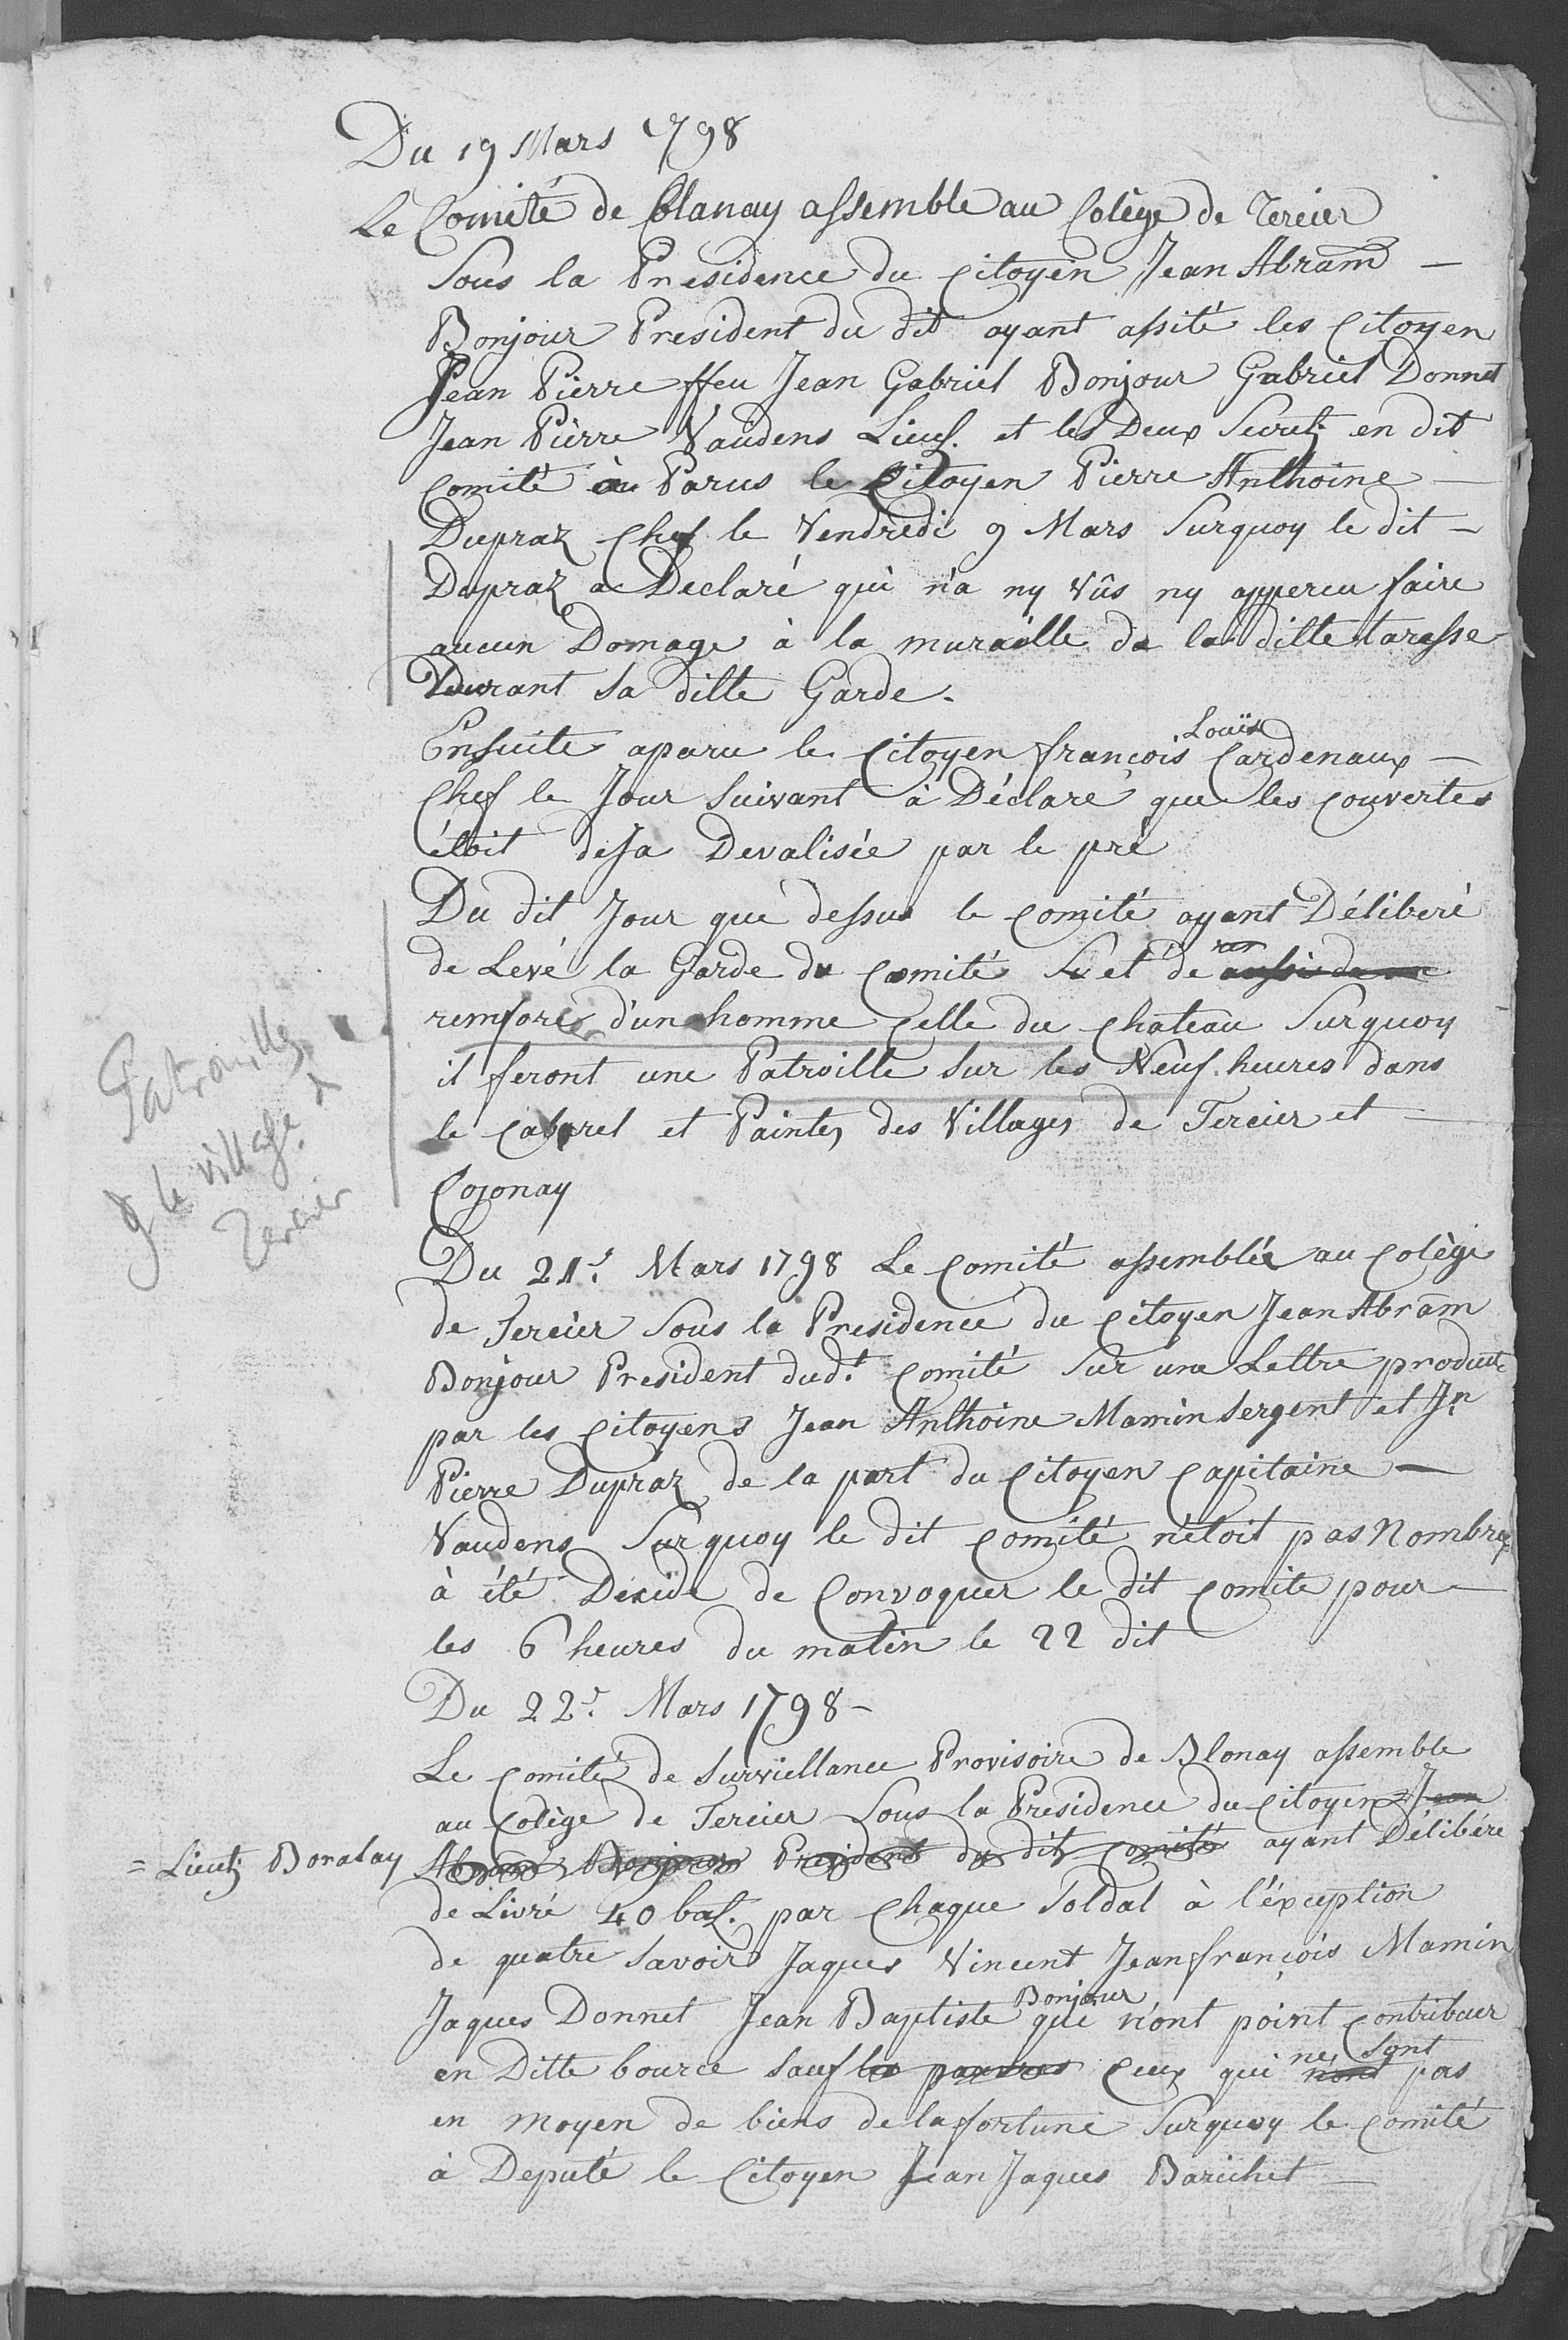 Du 19 Mars 1798
Le Comité de Blanay assemble au Colège de Tercier
Sous la Presidence du Citoyen Jean Abram
Bonjour President du dit ayant assité les Citoyen
Jean Pierre ffeu Jean Gabriel Bonjour Gabriel Donnet
Jean Pierre Vaudens Lieut. et les Deux Secret; en dit
Comité à Parus le Citoyen Pierre Anthoine
Dupraz Chef le Vendredi 9 Mars Surquoy le dit
Dupraz a Declaré qui n'a ny Vûs ny apperçu faire
aucun Domage à la muraille de la ditte tarasse
Durant Sa ditte Garde.
Ensuite aparu le Citoyen françois Louïs Cardenaux
Chef le Jour Suivant à Déclaré que les couvertes
étoit deJa Devalisée par le pré
Du dit Jour que dessus le Comité ayant Délibéré
de Levé la Garde du Comité et de aussi de
renforcé d'un homme Celle du Chateau Surquoy
il feront une Patroille Sur les Neuf heures dans
le Cabaret et Paintes des Villages de Tercier et
Cojonay
Patrouille
le village de
Tercier
Du 21e. Mars 1798 Le Comité assemblée au Colège
de Tercier Sous la Presidence du Citoyen Jean Abram
Bonjour President dud.t Comité Sur une Lettre produite
par les Citoyens Jean Anthoine Mamin Sergent et Jn
Pierre Dupraz de la part du Citoyen Capitaine
Vaudens Surquoy le dit Comité n'étoit pas Nombreux
à été Décide de Convoquer le dit Comite pour
les 6 heures du matin le 22 dit
Du 22e. Mars 1798
Le Comité de Surviellance Provisoire de Blonay assemble
au Colège de Tercier Sous la Presidence du Citoyen Jean
= Lieut; Boralay Abram Bonjour President du dit Comité ayant Délibére
de Livré 40 bat. par Chaque Soldat à l'éxception
de quatre Savoir Jaques Vincent Jean françois Mamin
Jaques Donnet Jean Baptiste Bonjour qui n'ont point Contribuer
en Ditte bource Sauf les pauvres Ceux qui n'ont ne Sont pas
en moyen de biens de la fortune Surquoy le Comité
à Deputé le Citoyen Jean Jaques Barichet